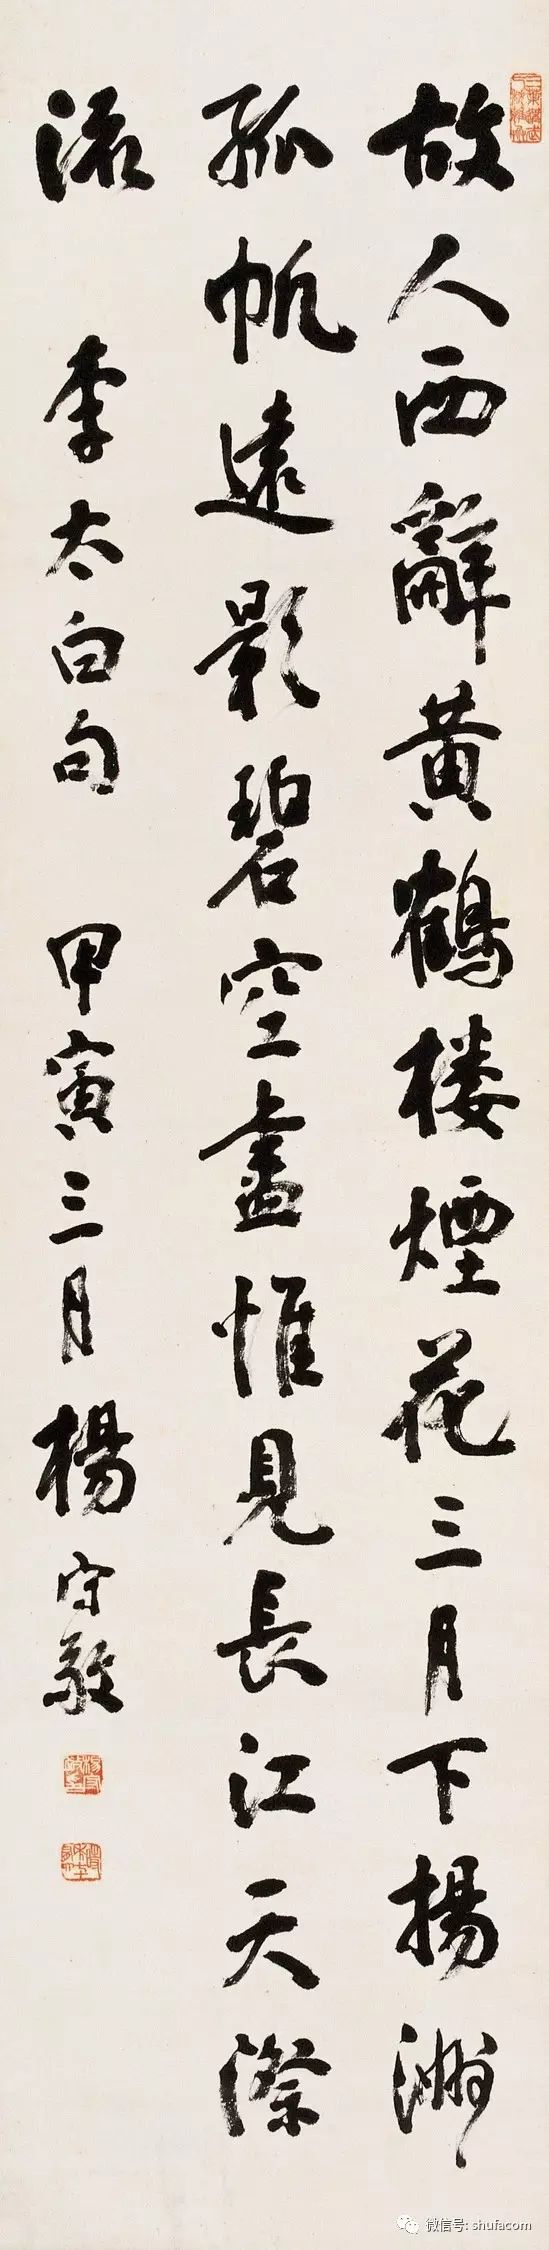 故人西辭黃鶴樓煙花三月下揚洲
孤帆遠影碧空盡惟見長江天際
流 李太白句 甲寅三月楊守敬
微信号: shufacom